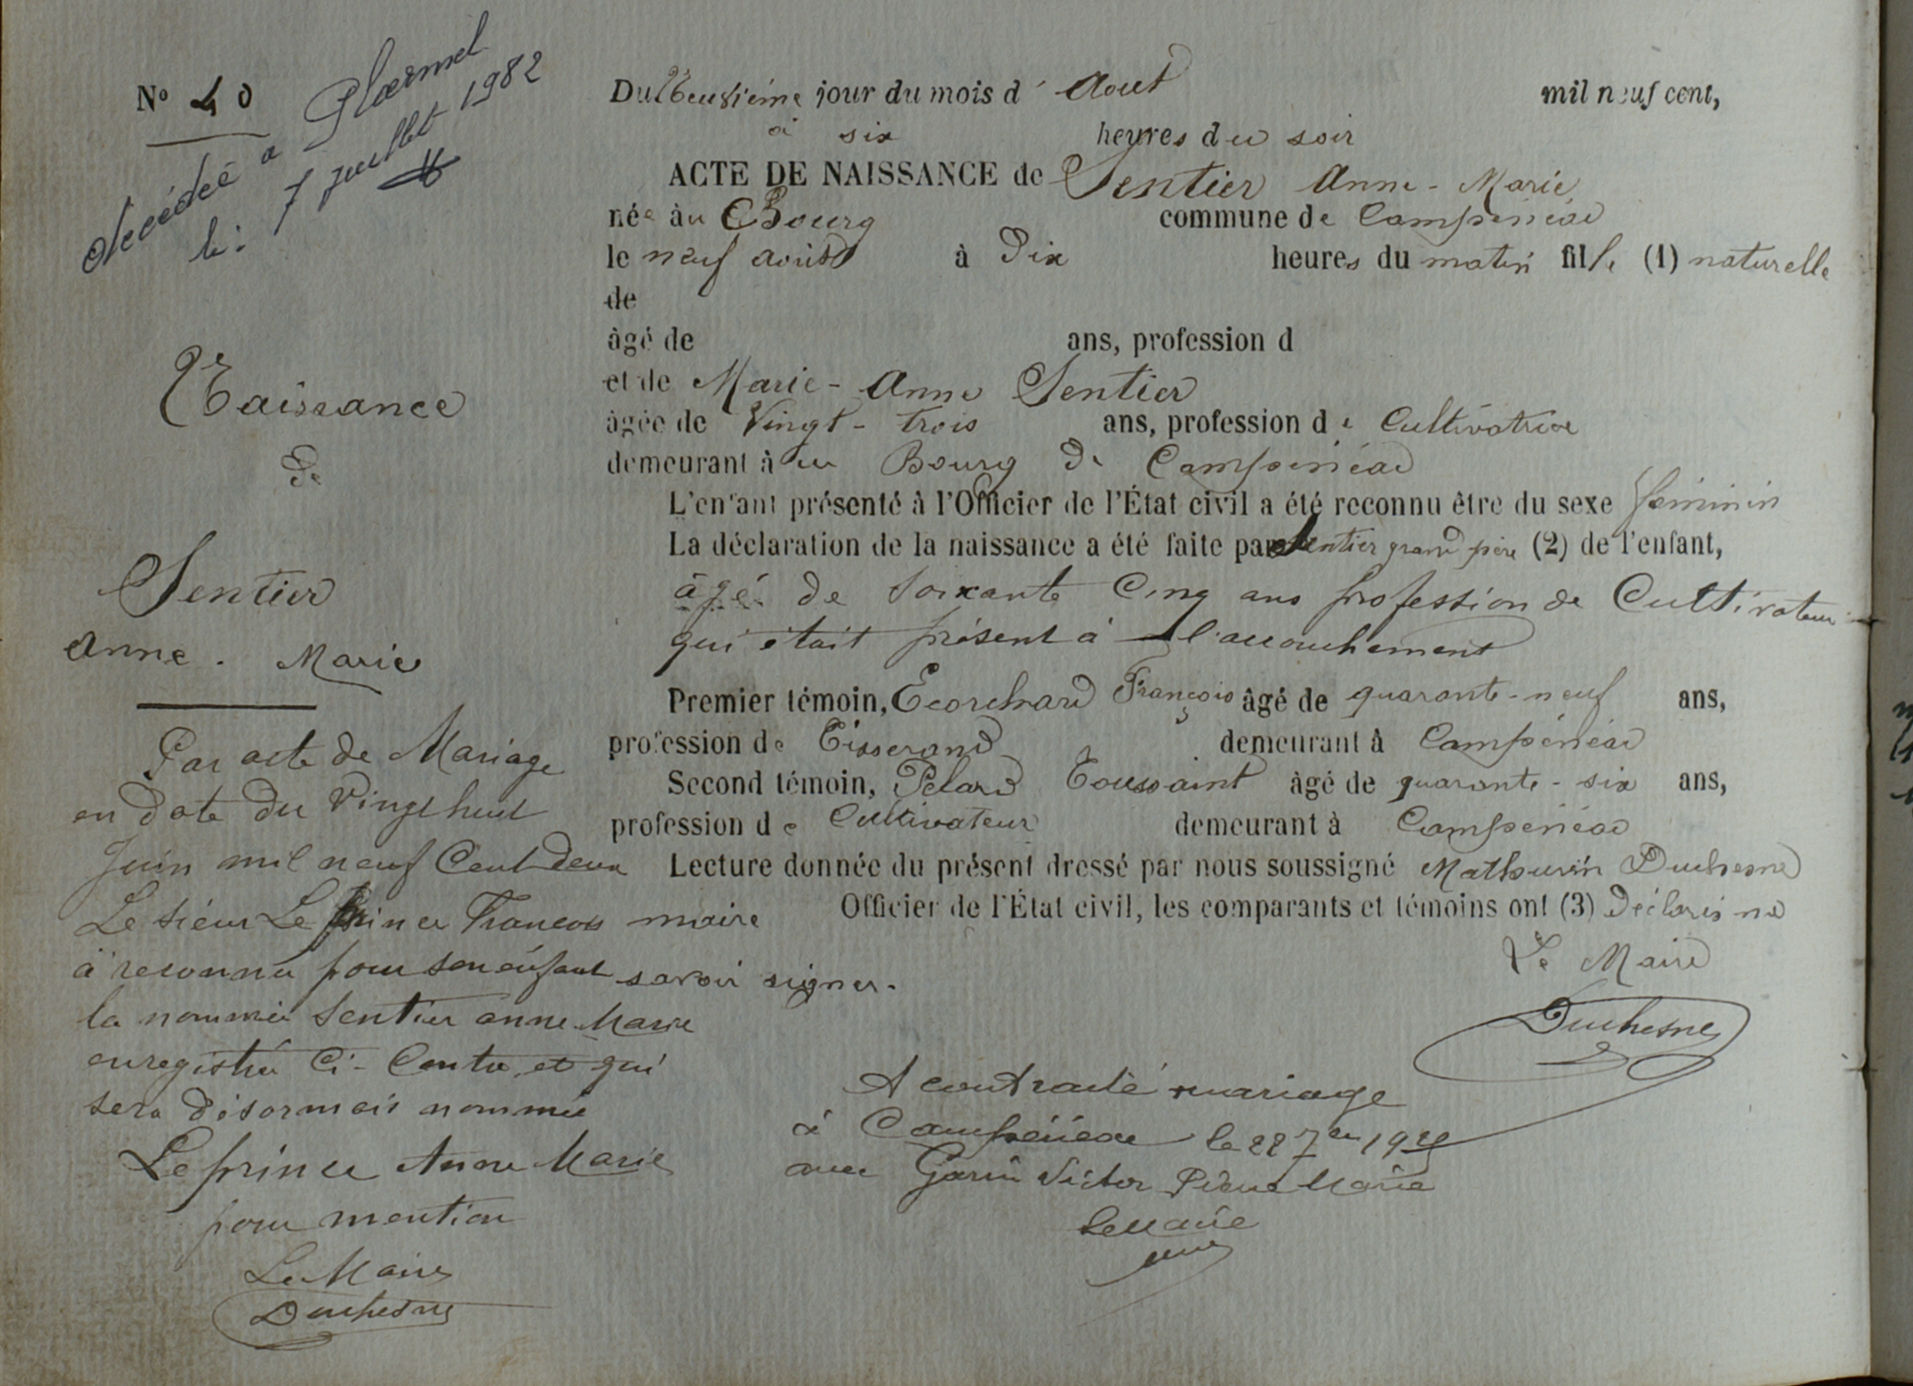 N° 40
décédée à Ploërmel
le: 7 juillet 1982
Naissance
de
Sentier
Anne. Marie
Par acte de Mariage
en date du Vingt huit
Juin mil neuf Cent deux
Le sieur Le prince Francois
à reconnu pour son enfant
la nommée Sentier anne Marie
enregistrée Ci-Contre et qui
sera désormais nommée
Le prince Anne Marie
pour mention
Le Maire
Duchesne
Du Neuvième jour du mois d' Aout mil neuf cent,
à six heures du soir
ACTE DE NAISSANCE de Sentier Anne-Marie
née au Bourg commune de Campénéac
le neuf août à Dix heures du matin fille (1) naturelle
de
âgé de ans, profession d
et de Marie-Anne Sentier
âgée de Vingt-trois ans, profession de Cultivatrice
demeurant à au Bourg de Campénéac
L'enfant présenté à l'Officier de l'État civil a été reconnu être du sexe féminin
La déclaration de la naissance a été faite par Sentier grand père (2) de l'enfant,
âgé de soixante Cinq ans profession de Cultivateur
qui était présent à l'accouchement
Premier témoin, Ecorchard François âgé de quarante-neuf ans,
profession de Tisserand demeurant à Campénéac
Second témoin, Pelard Toussaint âgé de quarante-six ans,
profession de Cultivateur demeurant à Campénéac
Lecture donnée du présent dressé par nous soussigné Mathurin Duchesne
maire Officier de l'État civil, les comparants et témoins ont (3) Déclarés ne
savoir signer.
Le Maire
Duchesne
A contracté mariage
à Campénéac le 22 7bre
avec Garin Victor Pierre Marie
Le Maire